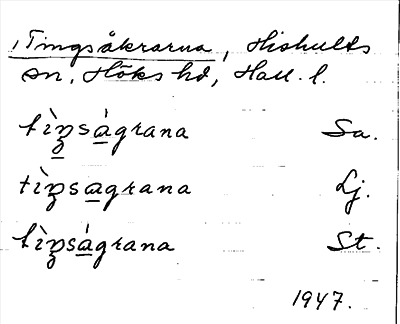 Tingsåkrarna, Hishults
sn, Höks hd, Hall. l.
tìŋsàgrana Sa.
tìŋsagrana Lj.
tìŋságrana St.
1947.